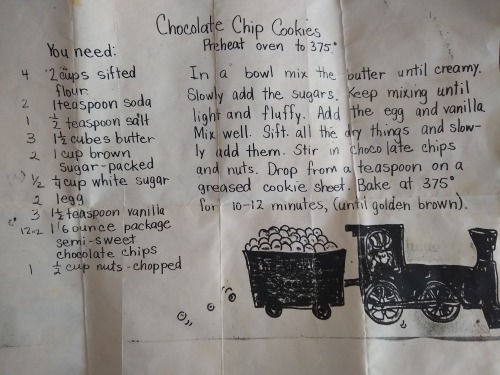 Chocolate Chip Cookies
Preheat oven to 375°
You need:
4 2 cups sifted
flour
2 1 teaspoon soda
1 ½ teaspoon salt
3 1½ cubes butter
2 1 cup brown
sugar-packed
½ ¼ cup white sugar
2 1 egg
3 1½ teaspoon vanilla
12oz 1 6 ounce package
semi-sweet
chocolate chips
1 ½ cup nuts-chopped
In a bowl mix the butter until creamy.
Slowly add the sugars. Keep mixing until
light and fluffy. Add the egg and vanilla
Mix well. Sift all the dry things and slow-
ly add them. Stir in chocolate chips
and nuts. Drop from a teaspoon on a
greased cookie sheet. Bake at 375°
for 10-12 minutes, (until golden brown).